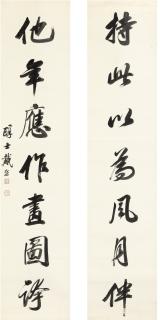 持此以為風月伴
他年應作畫圖誇
醇士戴熙